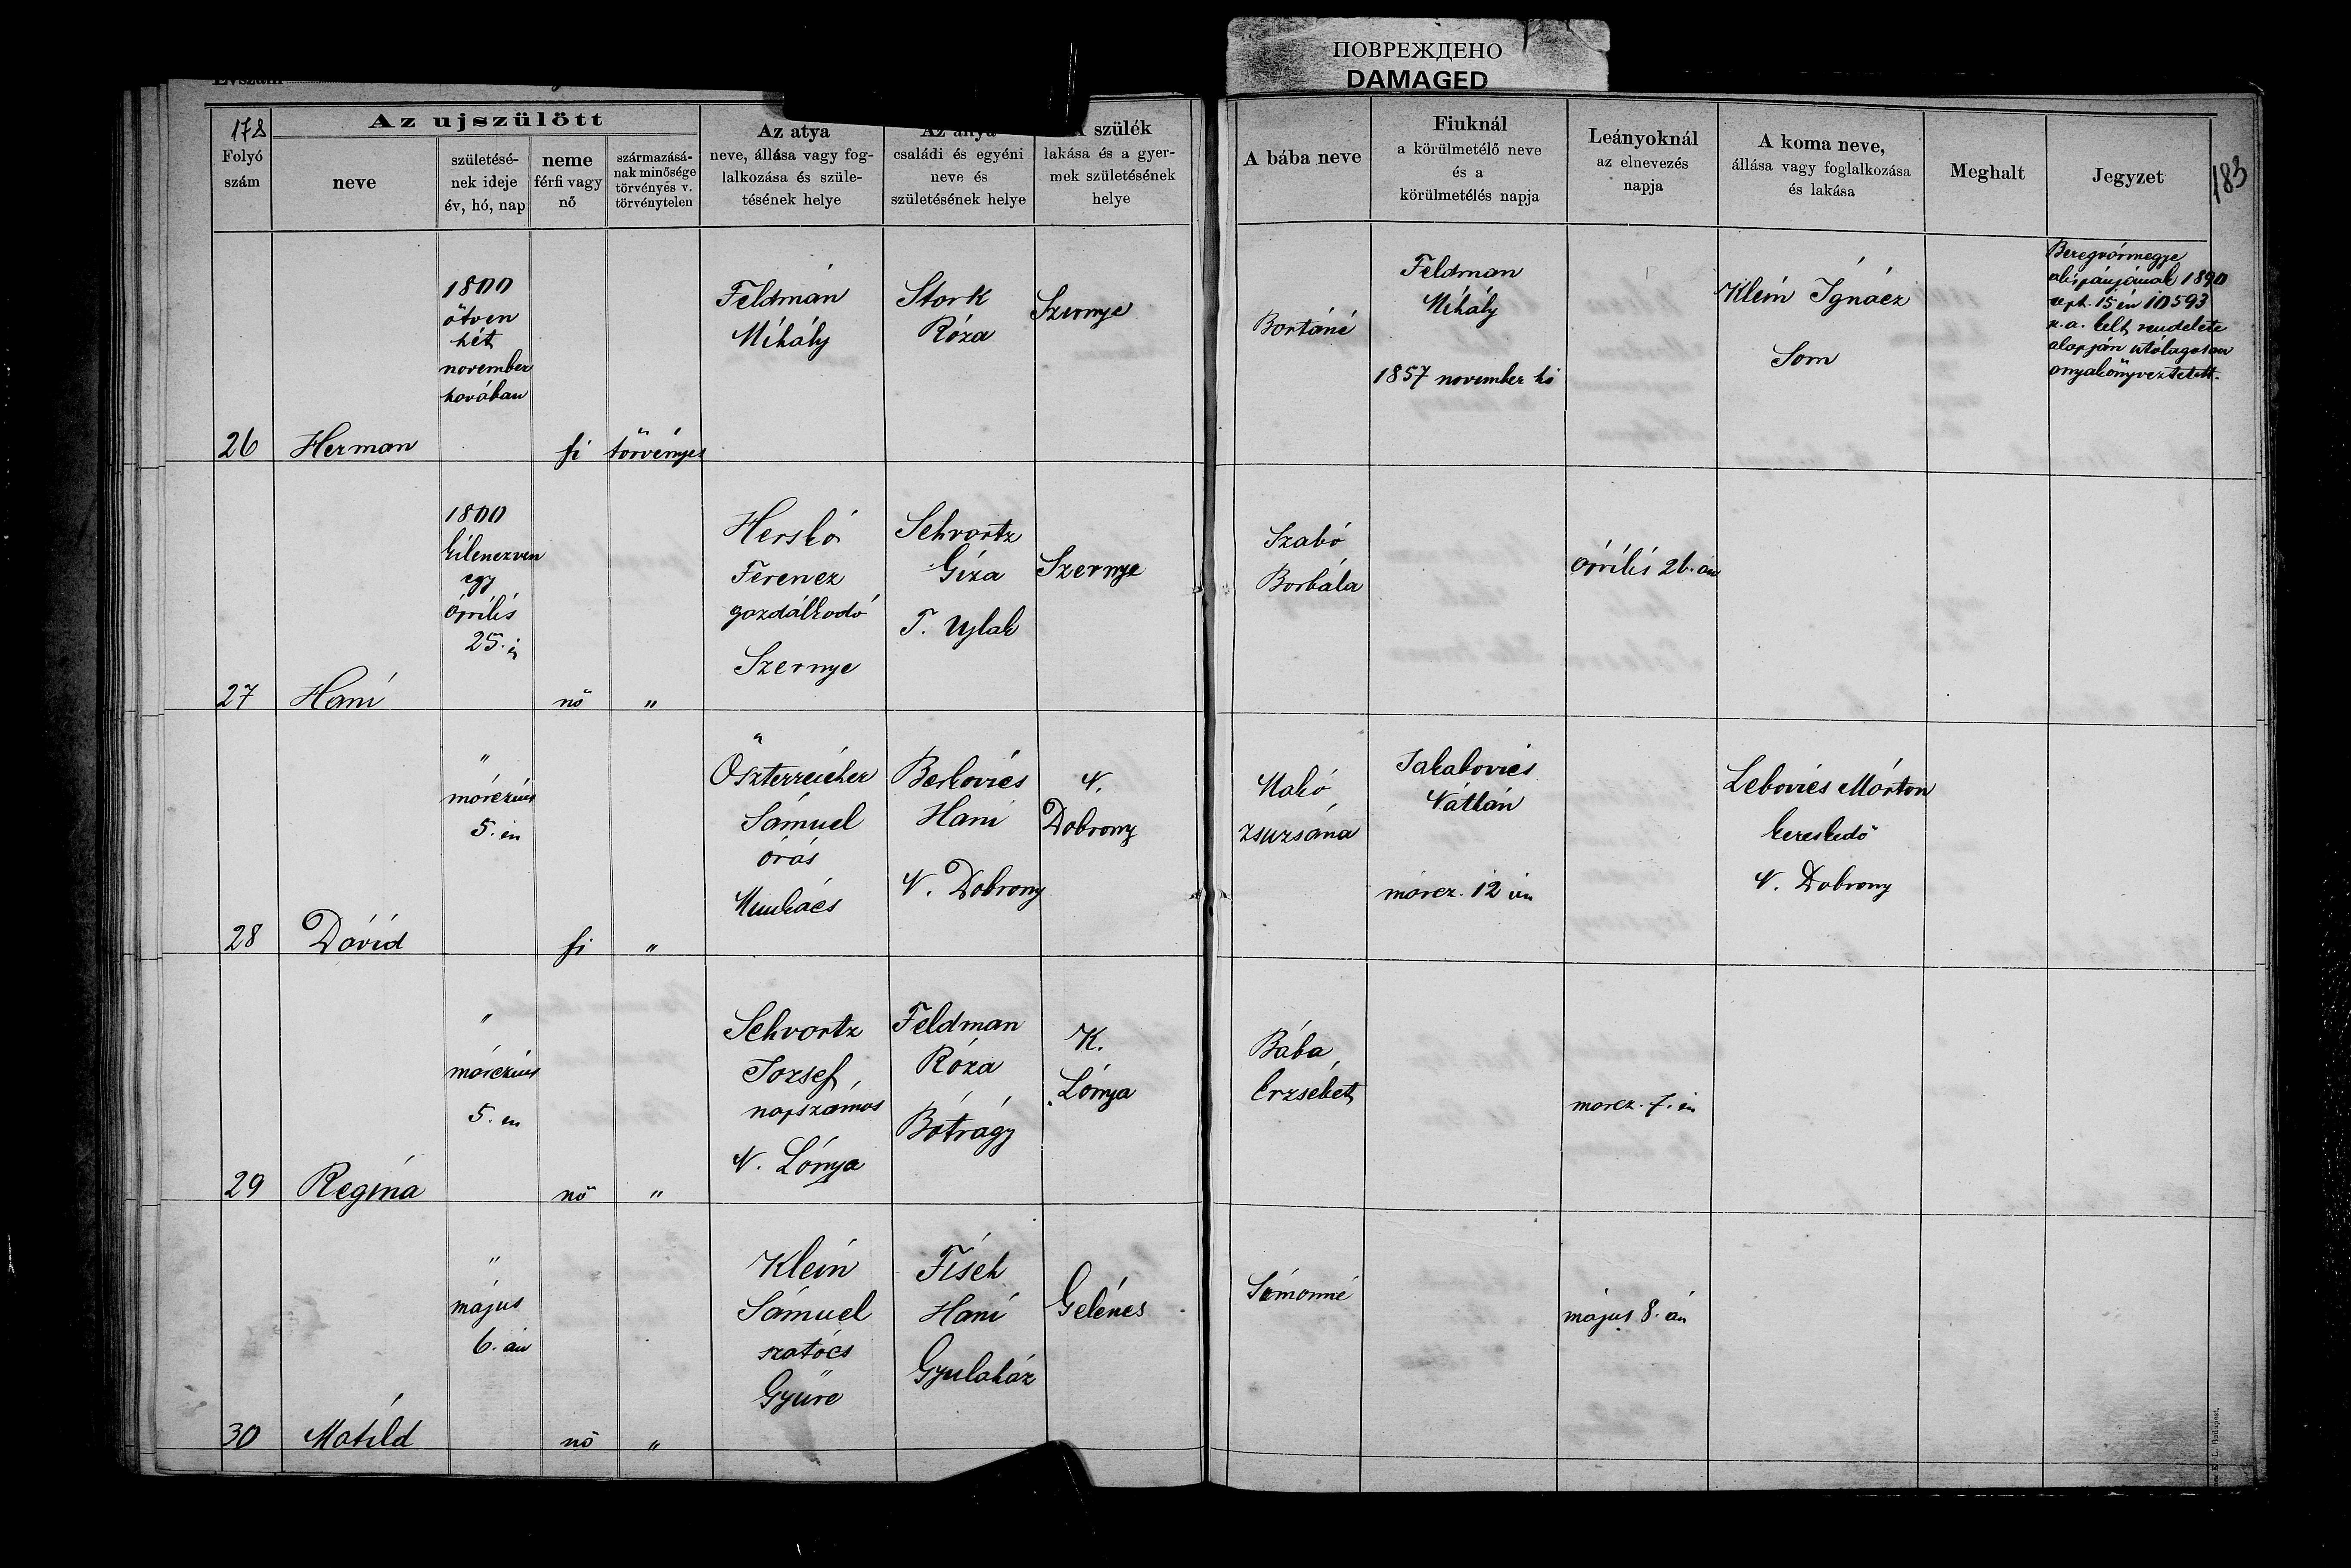 ПОВРЕЖДЕНО
DAMAGED
Évszám
178
183
Az ujszülött
Folyó
szám
neve
születésé-
nek ideje
év, hó, nap
neme
férfi vagy
nő
származásá-
nak minősége
törvényes v.
törvénytelen
Az atya
neve, állása vagy fog-
lalkozása és szüle-
tésének helye
Az anya
családi és egyéni
neve és
születésének helye
A szülék
lakása és a gyer-
mek születésének
helye
A bába neve
Fiuknál
a körülmetélő neve
és a
körülmetélés napja
Leányoknál
az elnevezés
napja
A koma neve,
állása vagy foglalkozása
és lakása
Meghalt
Jegyzet
26
Herman
1800
ötven
hét
november
havában
fi
törvényes
Feldman
Mihály
Stark
Róza
Szernye
Bartáné
Feldman
Mihály
1857 november hó
Klein Ignácz
Som
Beregvármegye
alispánjának 1890
sept. 15 én 10593
sz. a. kelt rendelete
alapján utólagosan
anyakönyveztetett.
27
Hani
1800
kilenczven
egy
április
25. én
nő
"
Herskó
Ferencz
gazdálkodó
Szernye
Schvartz
Giza
T. Ujlak
Szernye
Szabó
Borbála
április 26. án
28
Dávid
"
márczius
5. én
fi
"
Oszterreicher
Sámuel
órás
Munkács
Berkovics
Hani
N. Dobrony
N.
Dobrony
Makó
Zsuzsána
Jakabovics
Náthán
márcz. 12 én
Lebovics Márton
kereskedő
N. Dobrony
29
Regina
"
márczius
5. én
nő
"
Schvartz
József
napszámos
N. Lónya
Feldman
Róza
Bótrágy
K.
Lónya
Bába
Erzsébet
marcz. 7. én
30
Matild
"
május
6. án
nő
"
Klein
Sámuel
szatócs
Gyüre
Fisch
Hani
Gyulaház
Gelénes
Simonné
május 8. án